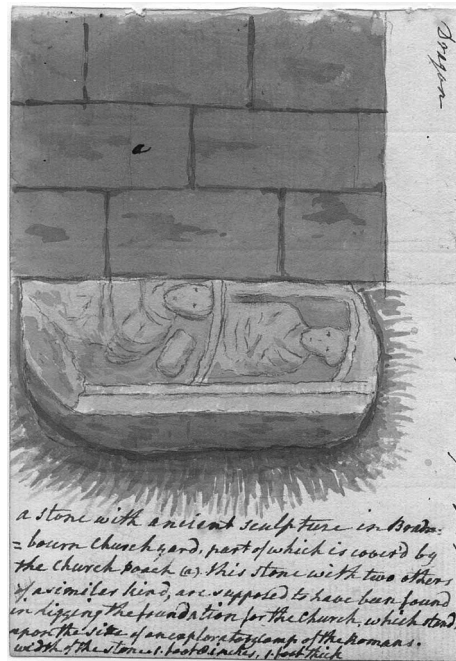 Dragon
a stone with ancient sculpture in Bradn:
=bourn Church yard, part of which is cover'd by
the Church Poach (a). this stone with two others
of a similer kind, are supposed to have been found
in diging the foundation for the Church, which stand
upon the site of an exploratory camp of the Romans.
width of the stone 1. foot 8 inches, 1. foot thick